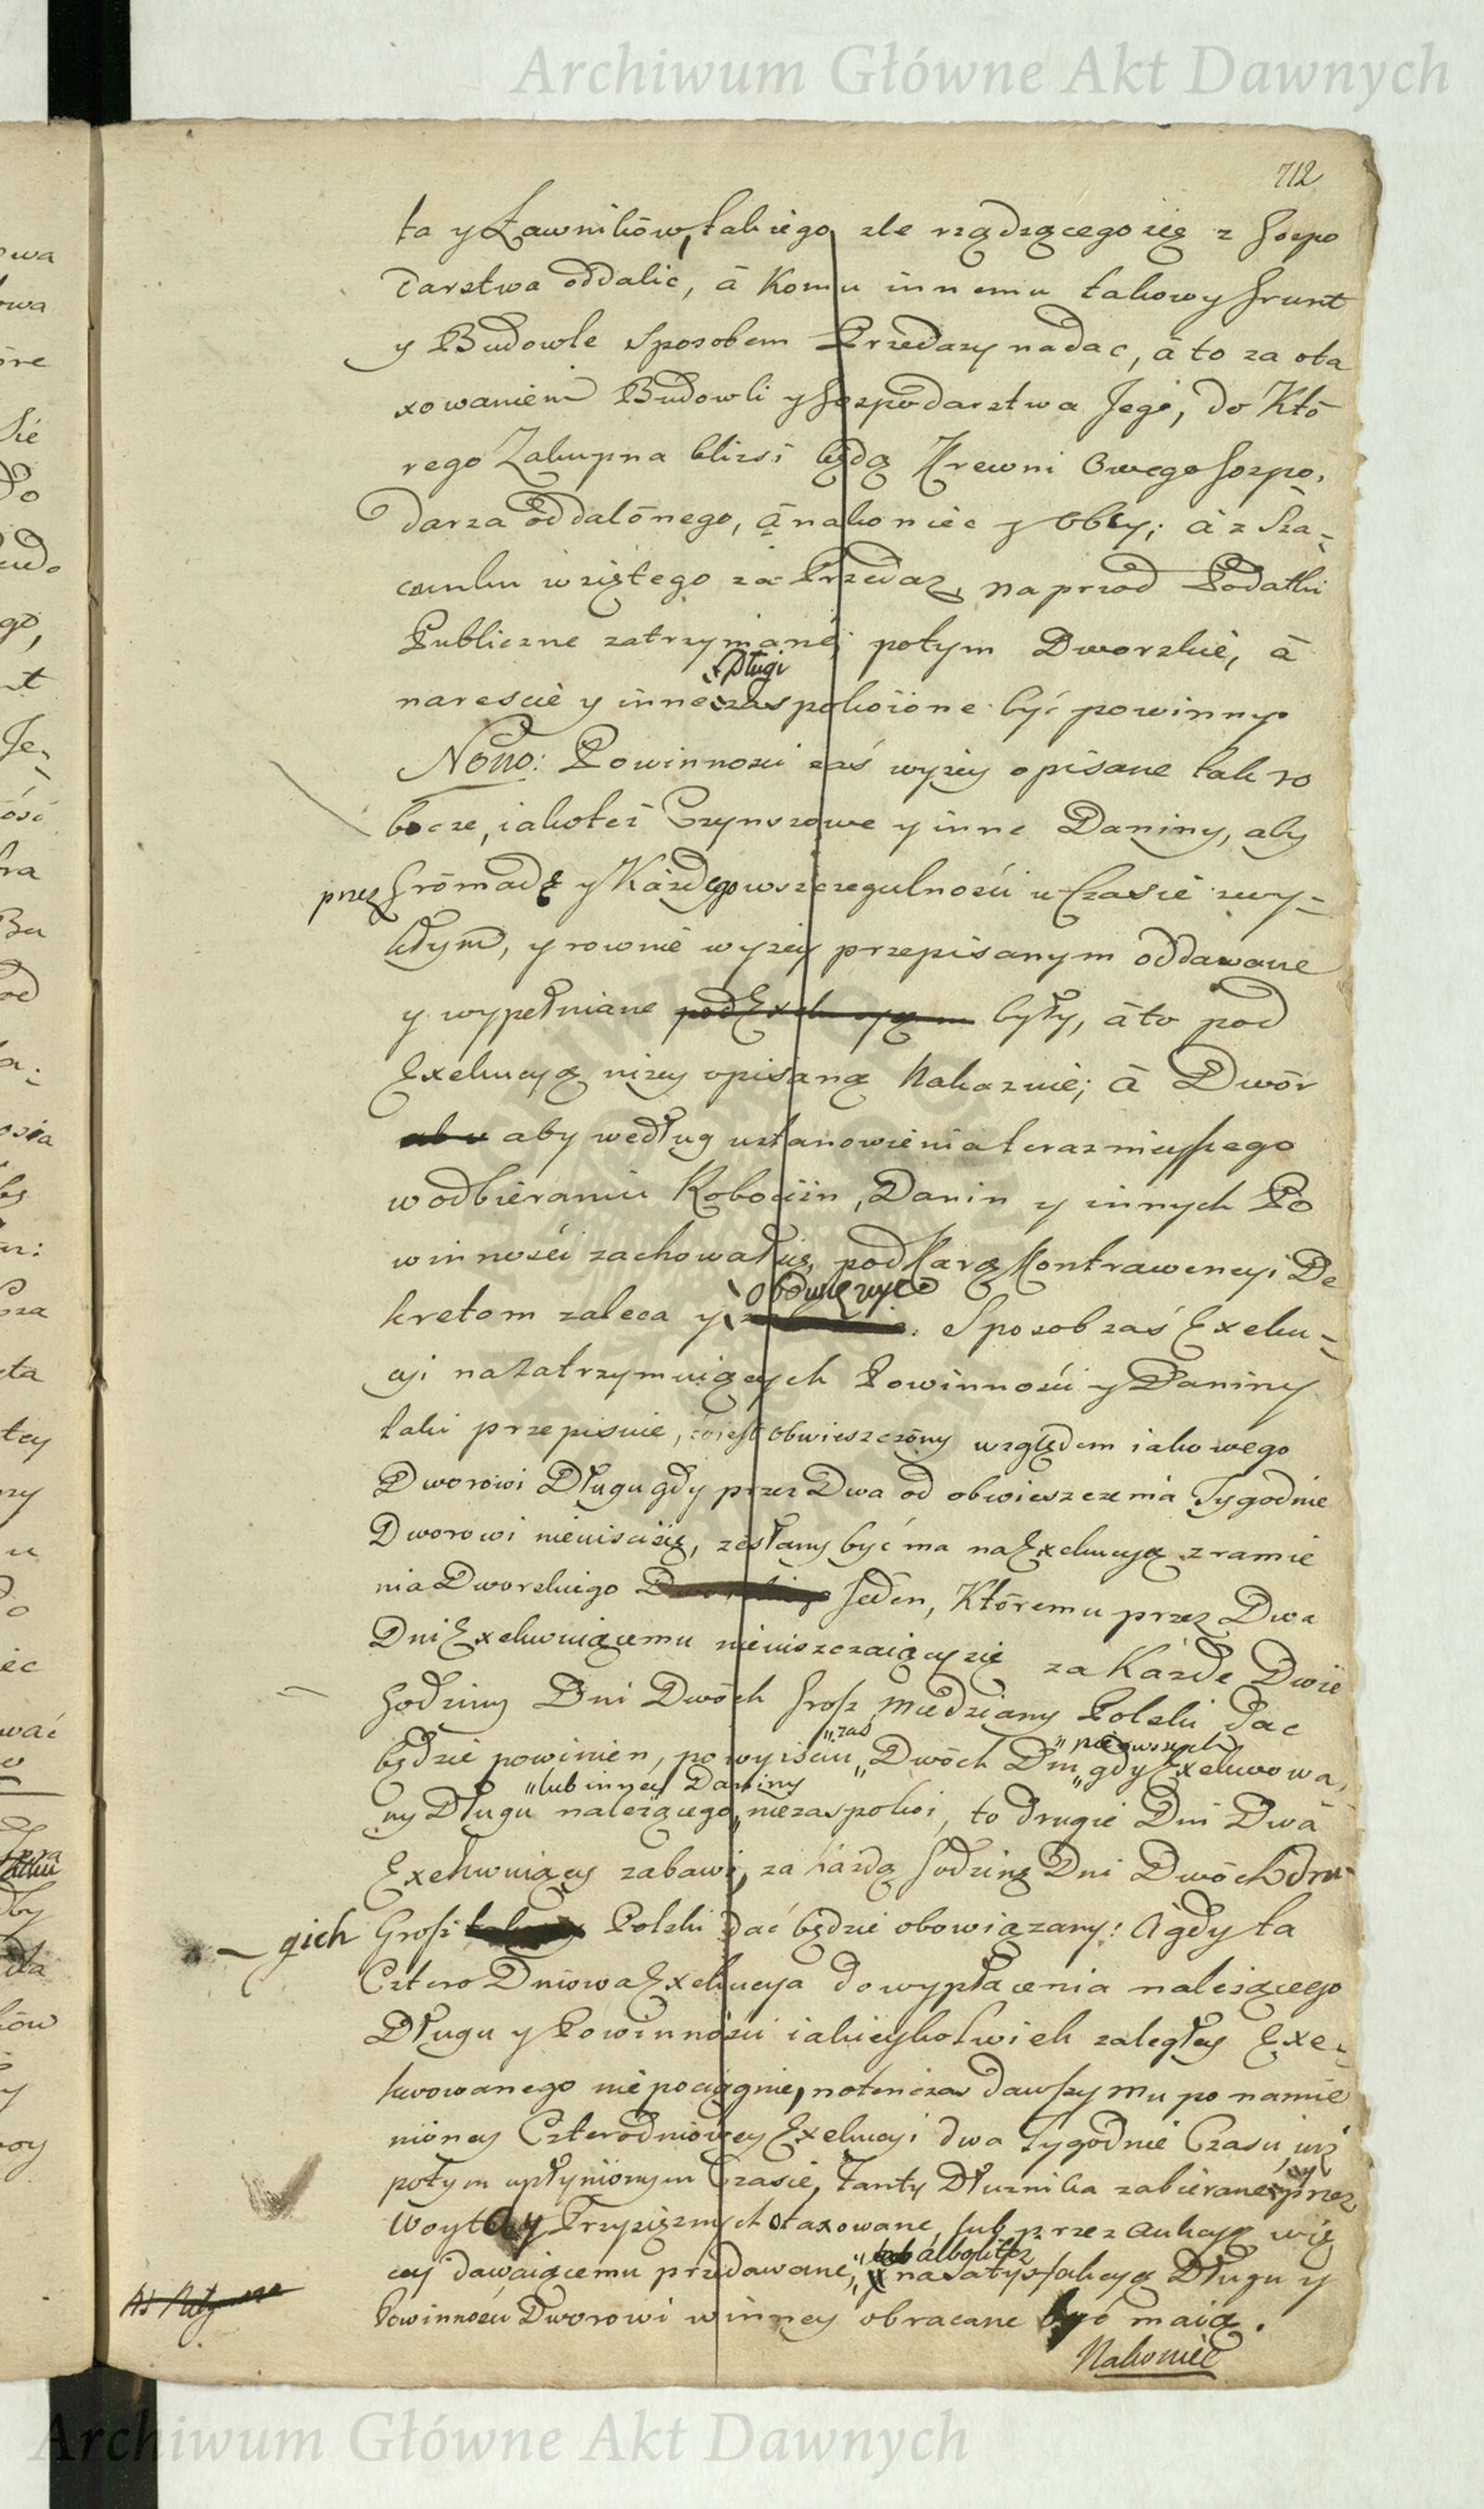 Archiwum Główne Akt Dawnych
712
ta y Ławnikōw, takiego zle rządzącego się z Gospo
darstwa oddalic, ā komu innemu takowy Grunt
y Budowle sposobem Przedazy nadac, ā to za ota
xowaniem Budowli y Gospodarstwa Jego, do Ktō
rego Zakupna blizsi będą Krewni Owego Gospo,
darza oddalōnego, ā nakoniec y Obcy; ā z Sza-
cunku wziętego za Przedaz, naprzod Podatki
Publiczne zatrzymane, potym Dworskie, ā
Długi
narescie y inne zaspokoione być powinny.
Nōno: Powinnosci zaś wyżey opisane tak ro
bocze, iakoteż Czynszowe y inne Daniny, aby
przez Grōmadę y Każdego wszczegulności w Czasie zwy-
kłym, y rownie wyżey przepisanym oddawane
y wypełniane pod Exekucyą były, ā to pod
Exekucyą niżey opisaną Nakazuie; ā Dwōr
aby według ustanowienia teraznieyszego
w odbieraniu Robocizn, Danin y innych Po
winności zachował się, pod Karą Kontrawencyi De
obowięzuye
kretom zaleca y. Sposob zaś Exeku-
cyi na Zatrzymuiących Powinności y Daniny
taki przepisuie, iż iest obwieszczōny względem iakowego
Dworowi Długu gdy przez Dwa od obwieszczenia Tygodnie
Dworowi nieuisci się, zesłany być ma na Exekucyą z ramie
nia Dworskiego Dworskiego Jeden, Ktōremu przez Dwa
Dni Exekwuiącemu nieuiszczaiący się za Każde Dwie
Godziny Dni Dwōch Grosz Miedziany Polski dac
zas pierwszych
będzie powinien, po wyisciu Dwōch Dni gdy Exekwowa,
lub inney Daniny
ny Długu należącego niezaspokoi, to drugie Dni Dwā
Exekwuiący zabawi, za każdą Godzinę Dni Dwōch dru-
gich Grosz Polski dać będzie obowiązany: A gdy ta
Cztero Dniowa Exekucya do wypłacenia należącego
Długu y Powinności iakieykolwiek zaległey Exe-
kwowanego nie pociągnie, natenczas dawszy mu po namie
nioney Czterodniowey Exekucyi dwa Tygodnie Czasu, iuż
potym upłynionym Czasie, Fanty Dłużnika zabierane, przez
Woyta y Przysięznych otaxowane, lub przez aukcyę wię
albo litż
cey dawaiącemu przedawane, na satysfakcyą Długu y
Powinności Dworowi winney obracane być maią.
Nakoniec
Archiwum Główne Akt Dawnych